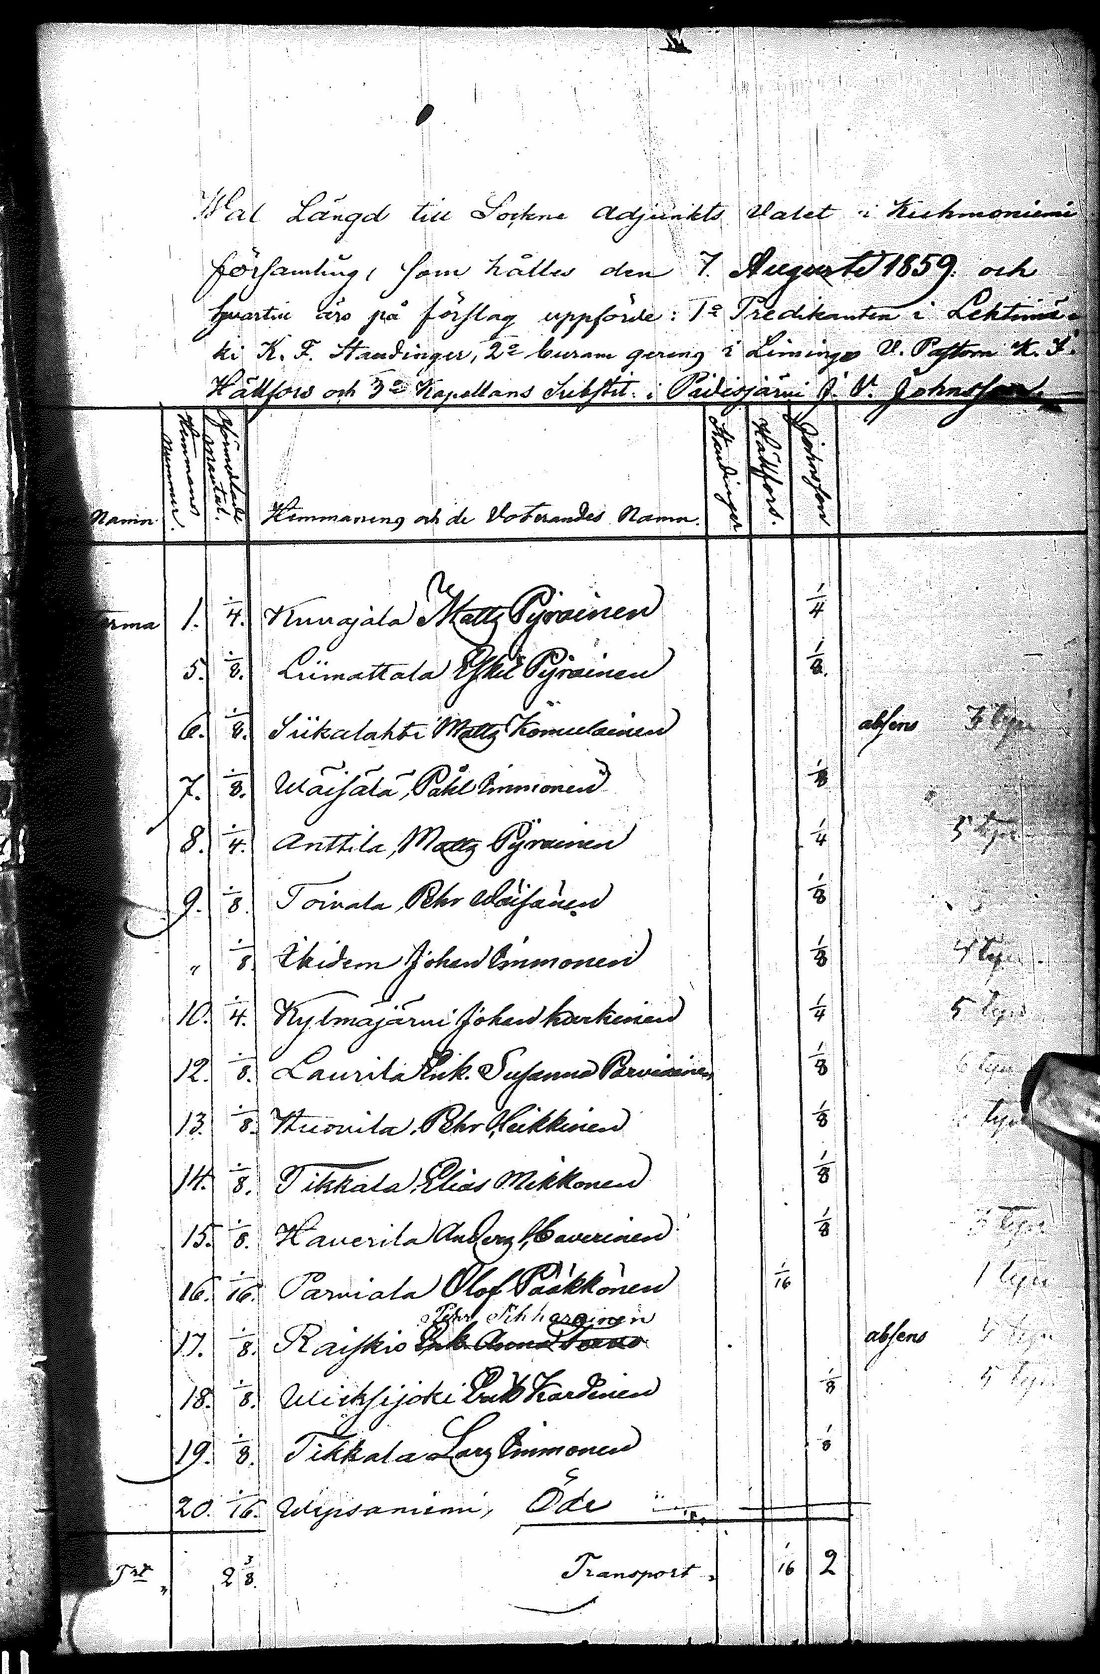 Wal Längd till Sockne Adjunkts Valet i Kuhmoniemi
församling, som hålles den 7 Augusti 1859. och
hvartill äro på förslag uppförde: 1o Predikanten i Lehtimä-
ki K. F. Staudinger, 2o Curam gerens i Limingo V. Pastorn K. F.
Hällfors och 3o Kapellans Substit. i Pidisjärvi J. V. Johnsson.
Namn Hemmans Nummer. Förmedlade Mantal. Hemmanens och de Voterandes Namn. Staudinger Hällfors. Johnsson
1. 1/4. Kuusjala Matts Pyrainen 1/4
5. 1/8. Liimattala Eskil Pyrainen 1/8.
6. 1/8. Siikalahti Matts Komulainen absens
7. 1/8. Wäisälä, Påhl Immonen 1/8
8. 1/4. Anttila, Matts Pyrainen 1/4 5
9. 1/8. Toivala, Pehr Wäisänen 1/8
" 1/8 Ibidem Johan Immonen 1/8 4
10. 1/4. Kylmäjärvi Johan Karkinen 1/4 5
12. 1/8. Laurila Enk. Susanna Parviainen 1/8 6
13. 1/8. Huovila. Pehr Heikkinen 1/8
14. 1/8. Tikkala, Elias Mikkonen 1/8
15. 1/8. Haverila Anders Haverinen 1/8
16. 1/16. Parviala Olof Pääkkönen 1/16 1
Pehr Pikkarainen
17. 1/8. Raiskio Enk. Anna absens
18. 1/8. Wieksijoki Erik Kardinen 1/8 5
19. 1/8. Tikkala Lars Immonen 1/8
20. 1/16. Wepsäniemi, Öde
2 3/8. Transport 1/16 2